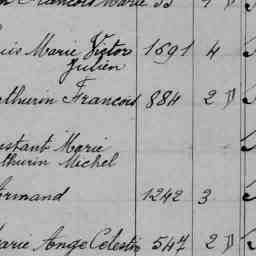 François Marie 33 1 D
uis Marie Victor 1691 4
Julien
thurin François 884 2 D
nstant Marie
thurin Michel
Armand 1242 3
Marie Ange Célestin 547 2 D